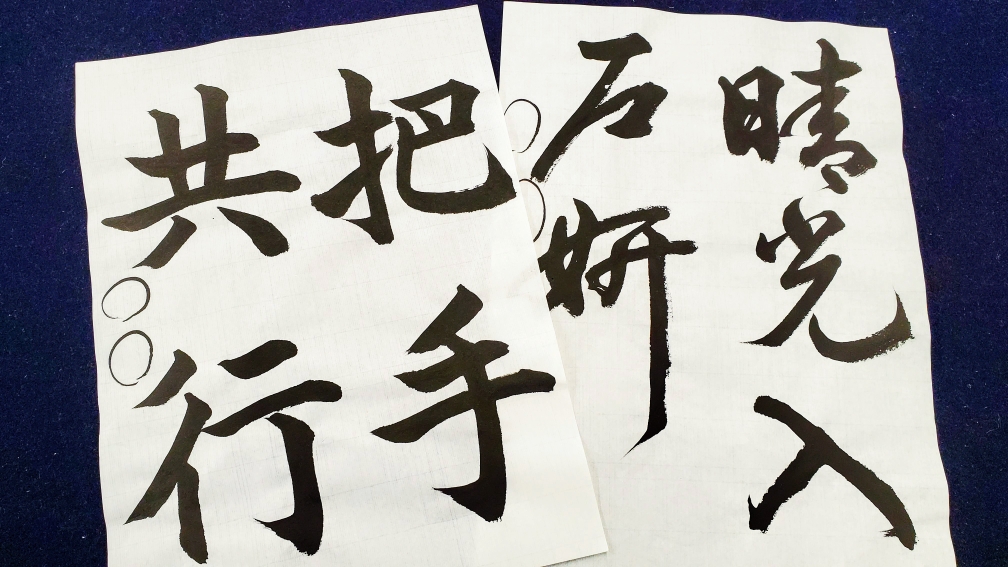 晴光入
石妍
把手
共行